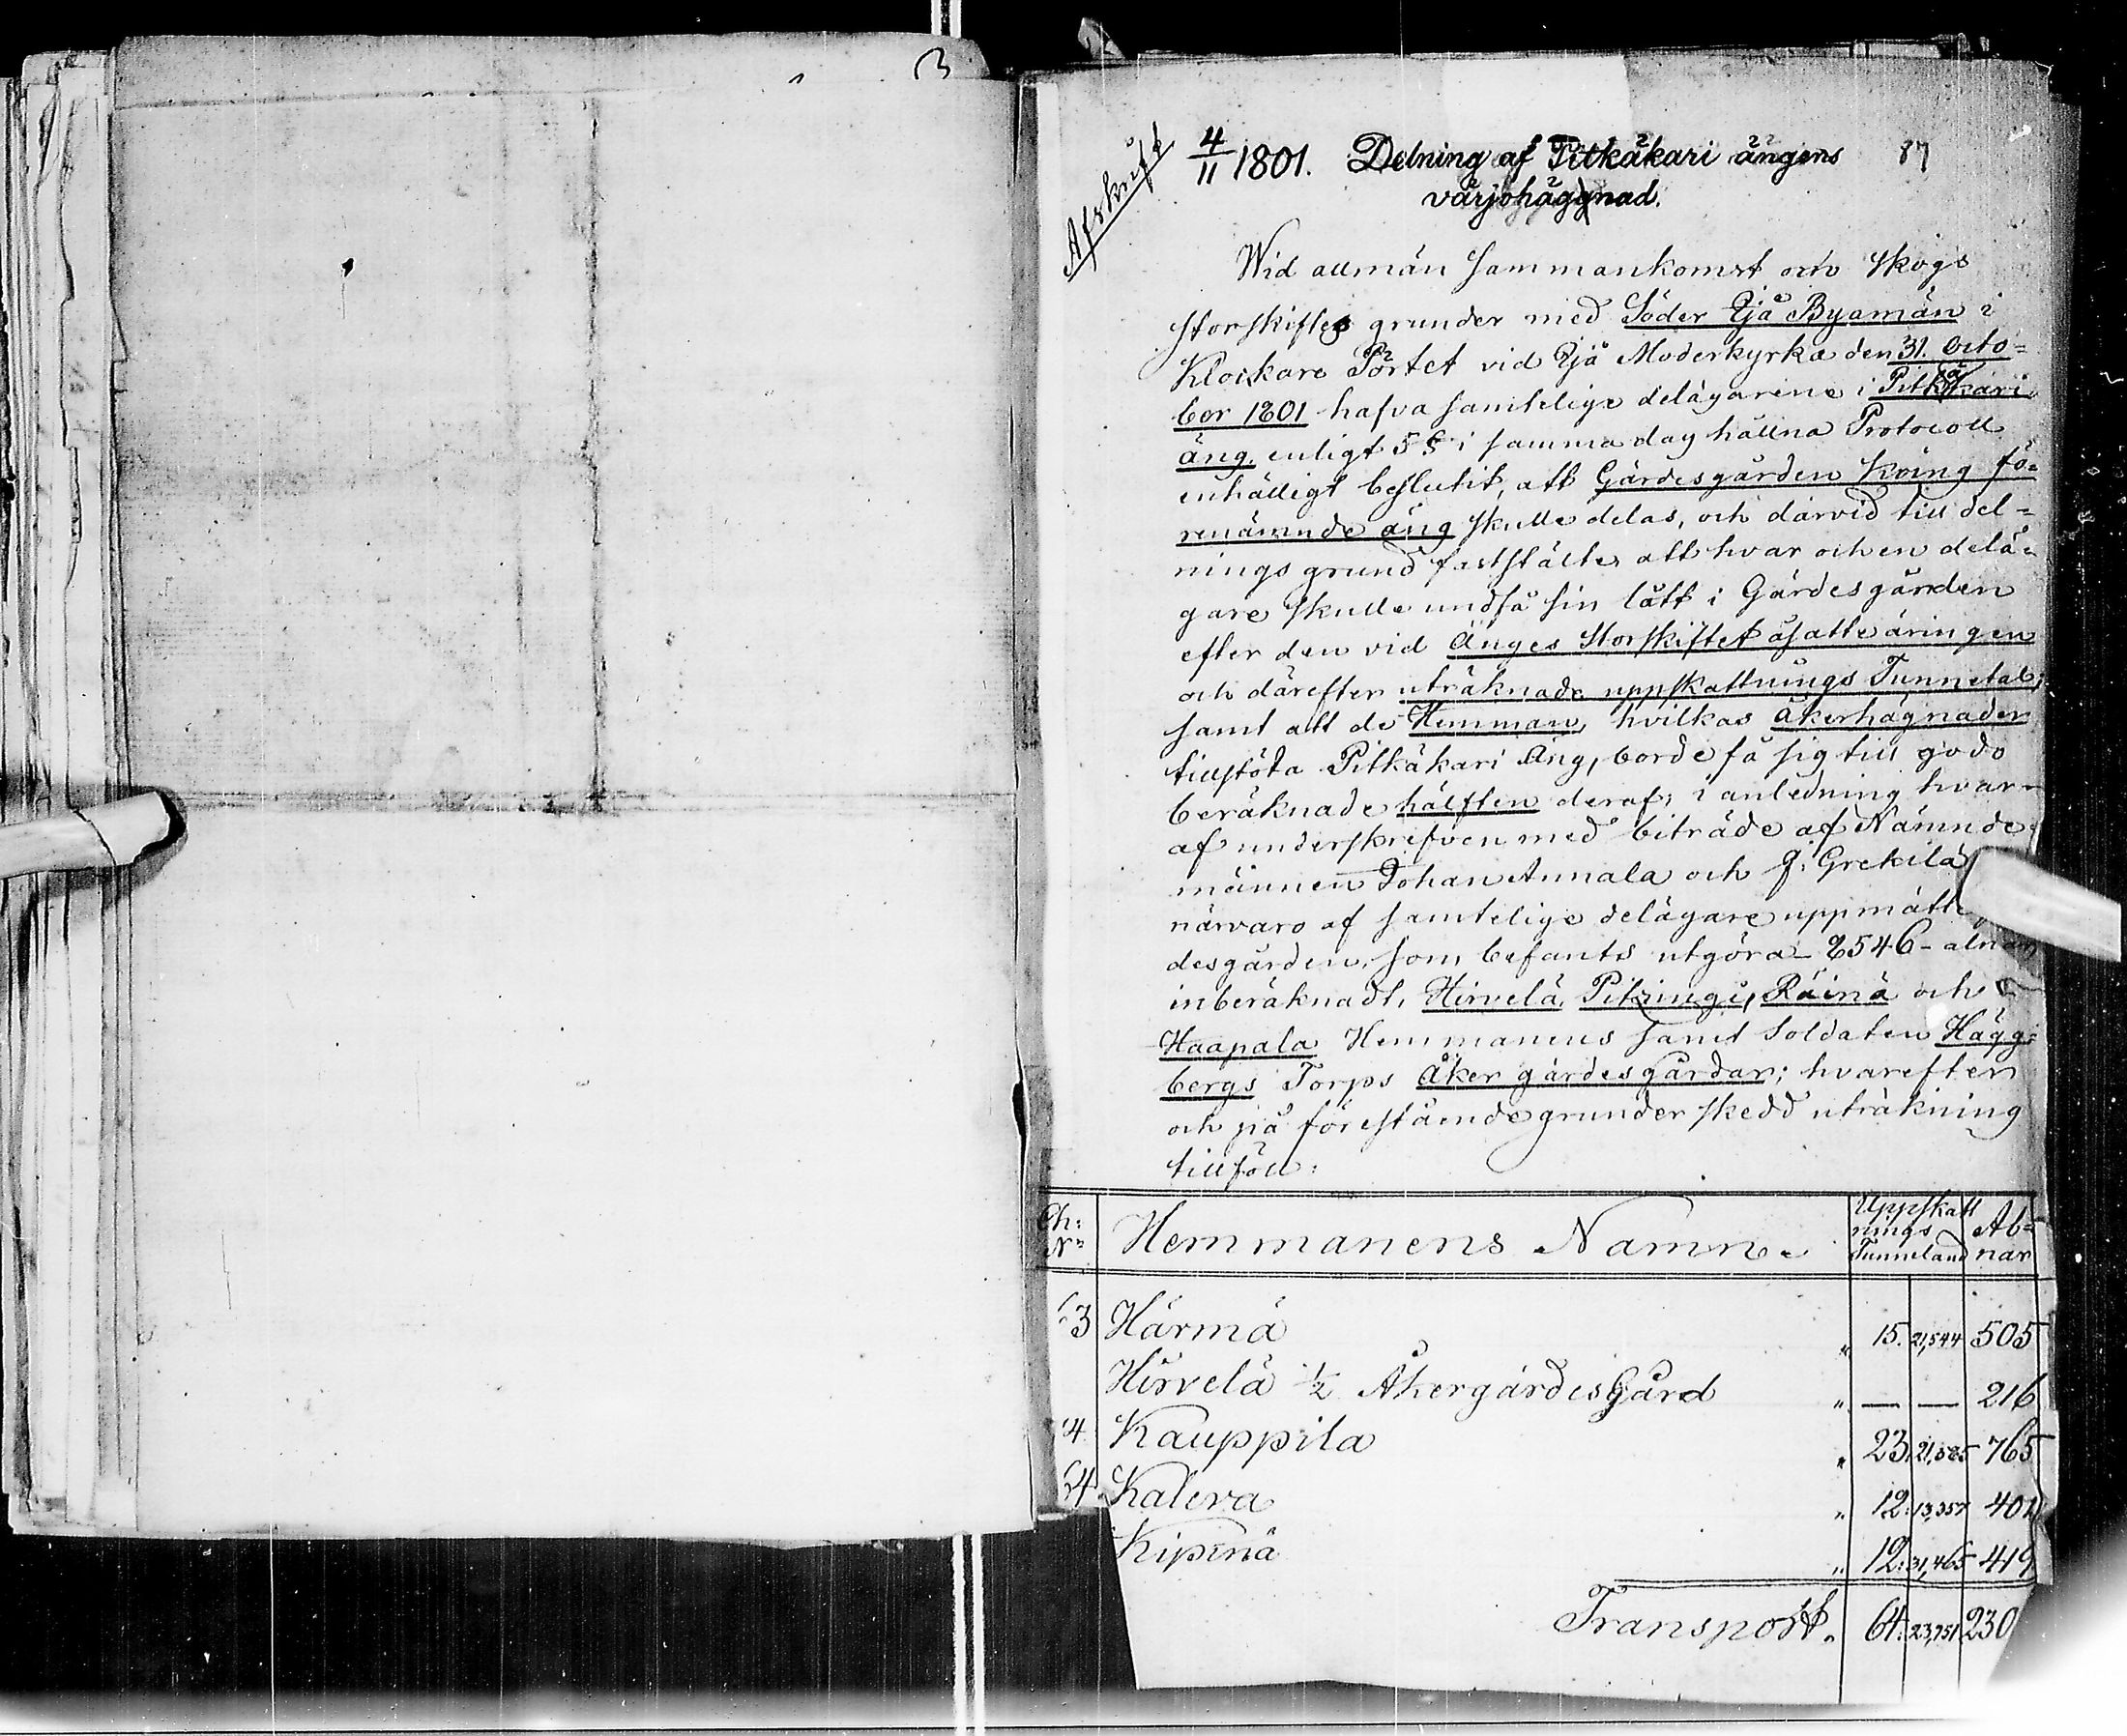 Afskrift
4/11 1801. Delning af Pitkäkari ängens 87
värjohägnad.
Wid allmän sammankomst och skogs
storskiftes grunder med Söder Ijå Byamän i
Klockare Pörtet vid Ijå Moderkyrka den 31. octo=
ber 1801 hafva samtelige delägarene i Pitkäkari
äng, enligt 5 § i samma dag hållna Protocoll
enhälligt beslutit, att Gärdesgården kring fö=
renämnde äng skulle delas, och därvid till del=
nings grund fastställts att hvar och en delä=
gare skulle undfå sin lått i Gärdesgården
efter den vid Änges Storskiftet åsatte äringen
och därefter uträknade uppskattnings Tunnetal,
samt att de Hemman, hvilkas åkerhägnader
tillstöta Pitkäkari Äng, borde få sig till godo
beräknade hälften deraf; i anledning hvar=
af underskrefven med biträde af Nämnde=
männen Johan Annala och J. Grekilä
närvaro af samtelige delägare uppmätt
desgården, som befants utgöra 8546 alnar
inberäknadt, Hirvelä, Pikringi, Räinä och
Haapala Hemmanens samt Soldaten Hägg=
bergs Torps Åker gärdesgårdar; hvarefter
och på förestämde grunder skedd uträkning
tillföll:
Ch: N:o Hemmanens Namn. Uppskatt nings Tunneland Al= nar
3 Härmä " 15. 21,544 505
Hirvelä 1/2 Åkergärdesgård " — — 216
4 Kauppila " 23. 765
4 Kaleva " 12: 13,357 401
Kipinä " 12: 31,465 419
Transport. 64: 23,751 230